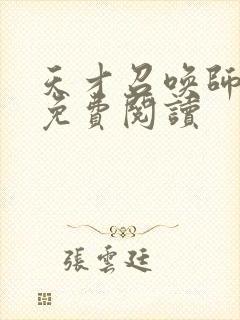 天才召喚師
免費閱讀
張雲廷